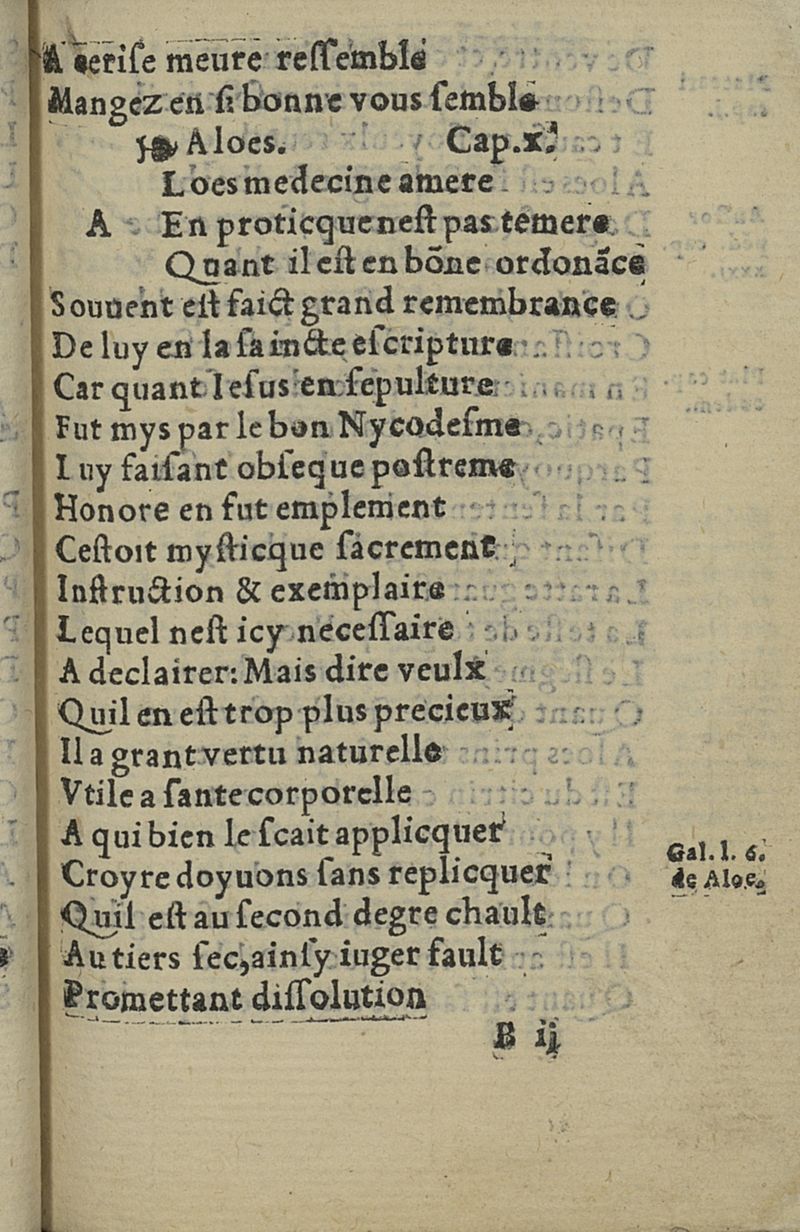 A cerise meure ressemble
Mangez en si bonne vous semble
Aloes. Cap.x.
Loes medecine amere
A En proticque nest pas temere
Quant il est en bõne ordonãce
Souuent est faict grand remembrance
De luy en la saincte escripture
Car quant Iesus en sepulture
Fut mys par le bon Nycodesme
Luy faisant obseque postreme
Honore en fut emplement
Cestoit mysticque sacrement
Instruction & exemplaire
Lequel nest icy necessaire
A declairer: Mais dire veulx
Quil en est trop plus precieux
Il a grant vertu naturelle
Vtile a sante corporelle
A qui bien le scait applicquer
Croyre doyuons sans replicquer
Gal. l. 6.
de Aloe.
Quil est au second degre chault
Au tiers sec, ainsy iuger fault
Promettant dissolution
B ij